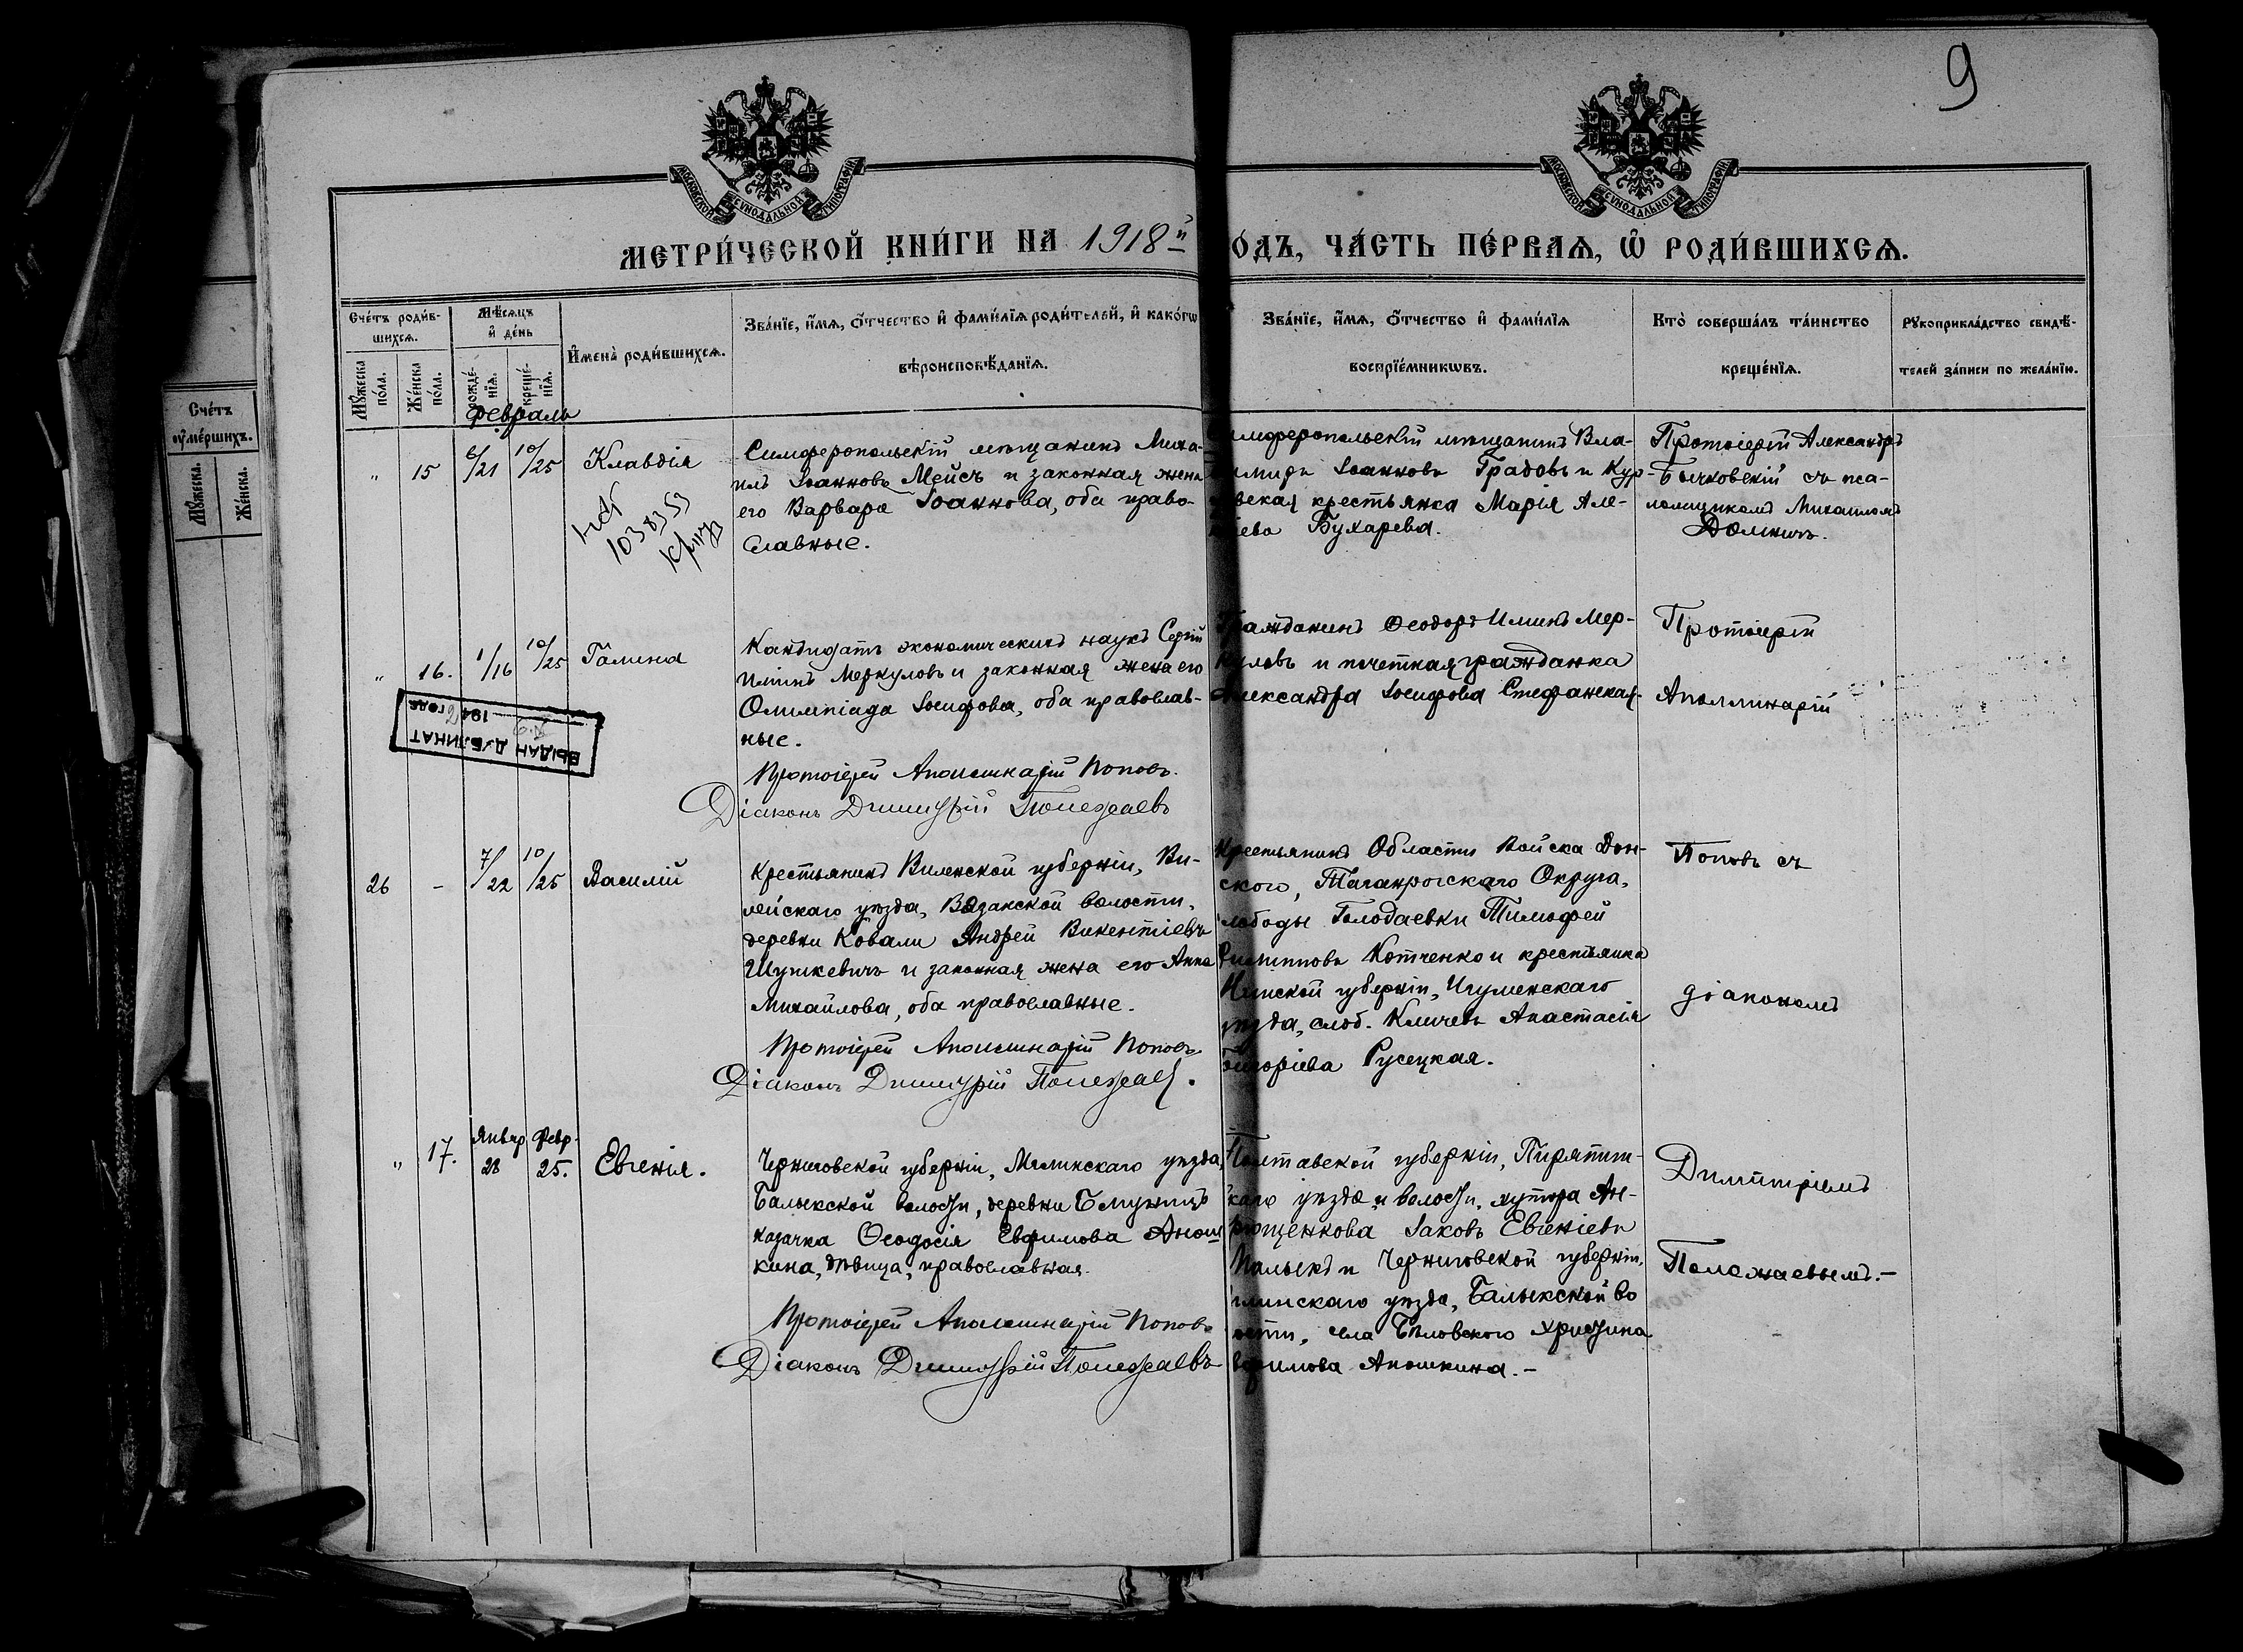 9
МОСКОВСКОЙ СѴНОДАЛЬНОЙ ТИПОГРАФІИ
МОСКОВСКОЙ СѴНОДАЛЬНОЙ ТИПОГРАФІИ
МЕТРИ́ЧЕСКОЙ КНИ́ГИ НА 1918й
О́ДЪ, ЧА́СТЬ ПЕ́РВАѦ, Ѡ҆ РОДИ́ВШИХСѦ.
Сче́тъ ᲂу҆ме́ршихъ.
Мꙋ́жеска.
Же́нска.
Сче́тъ роди́вшихсѧ.
Мꙋ́жеска по́ла.
Же́нска по́ла.
Мѣ́сѧцъ и҆ де́нь
рожде́нїѧ.
креще́нїѧ.
И҆мена̀ роди́вшихсѧ.
Зва́нїе, и҆́мѧ, ѻ҆́тчество и҆ фами́лїѧ роди́телей, и҆ како́гѡ
вѣроисповѣ́данїѧ.
Зва́нїе, и҆́мѧ, ѻ҆́тчество и҆ фами́лїѧ
воспрїе́мникѡвъ.
Кто̀ соверша́лъ та́инство
креще́нїѧ.
Рꙋкоприкла́дство свидѣ́-
телей за́писи по жела́нїю.
Февраль
" 15 8/21 10/25 Клавдія
Симферопольскій мѣщанинъ Миха-
илъ Іоанновъ Мейсъ и законная жена
его Варвара Іоаннова, оба право-
славные.
имферопольскій мѣщанинъ Вла-
миръ Іоанновъ Градовъ и Кур-
вская крестьянка Марія Але-
ева Бухарева.
Протоіерей Александръ
Бычковскій съ пса-
ломщикомъ Михаиломъ
1038353
" 16. 1/16 10/25 Галина
Кандидатъ экономическихъ наукъ Сергій
Илъинъ Меркуловъ и законная жена его
Олимпіада Іосифова, оба православ-
ные.
Протоіерей Аполлинарій Поповъ.
Діаконъ Димитрій Полежаевъ
Гражданинъ Ѳеодоръ Илинъ Мер-
куловъ и почетная гражданка
Александра Іосифова Стефанская.
Протоіерей
Аполлинарій
ВЫДАН ДУБЛИКАТ
194 года
26 - 7/22 10/25 Василій
Крестьянинъ Виленской губерніи, Ви-
лейскаго уѣзда, Вязанской волости,
деревни Ковали Андрей Викентіевъ
Шушкевичъ и законная жена его Анна
Михайлова, оба православные.
Протоіерей Аполлинарій Поповъ
Діаконъ Димитрій Полежаев.
Крестьянинъ Области Войска Дон-
ского, Таганрогскаго Округа,
лободы Голодаевки Тимофей
Филипповъ Котченко и крестьянка
Минской губерніи, Игуменскаго
уѣзда, слоб. Кличевъ Анастасія
Григоріева Русецкая.
Поповъ съ
діакономъ
" 17. Январ 28 Февр. 25. Евгенія.
Черниговской губерніи, Мглинскаго уѣзда,
Балыкской волости, деревни
казачка Ѳеодосія Евфимова Анош
кина, дѣвица, православная.
Протоіерей Аполлинарій Поповъ
Діаконъ Димитрій Полежаевъ
Полтавской губерніи, Пирятин-
скаго уѣзда и волости, хутора Ан-
рющенкова Іаковъ Евгеніевъ
и Черниговской губерніи,
глинскаго уѣзда, Балыкской во
ости, села Бѣловского Христина
вфимова Аношкина.-
Димитріемъ
Полежаевымъ.-